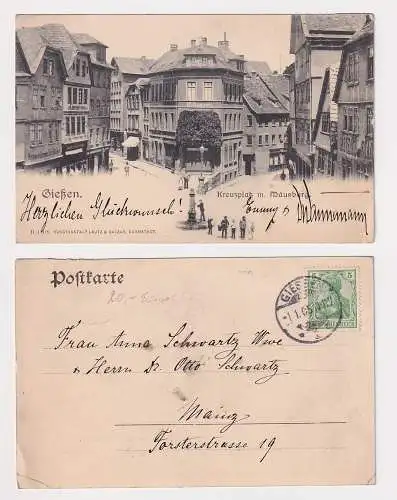 Gießen.
Kreuzplatz m. Mäusburg.
Herzlichen Glückwunsch!
Emmy &
KUNSTANSTALT LAUTZ & BALZAR, DARMSTADT.
Postkarte
GIESSEN
5 5
Frau Anna Schwartz Wwe
& Herrn Dr. Otto Schwartz
Mainz
Forsterstrasse 19